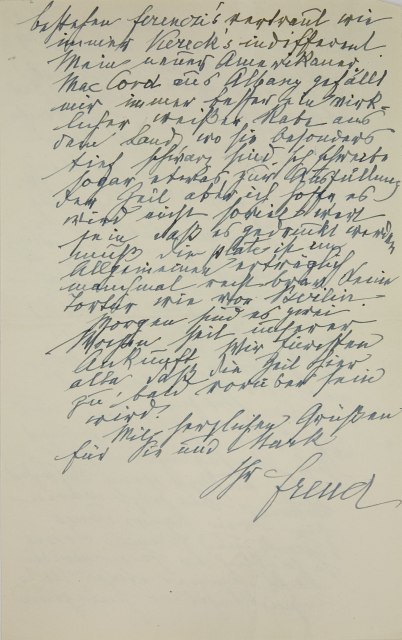 bestehen Ferenczi's vertraut wie
immer Vereck's indifferent
Mein neuer Amerikaner
MacCord aus Albany gefällt
mir immer besser, ein wirk-
licher weißer Rabe aus
dem Land, wo sie besonders
tief schwarz sind. Ich schreibe
sogar etwas zur Ausfüllung
der Zeil aber ich hoffe es
wird nicht soviel wert
sein daß es gedruckt werden
muß. Die ist im
Allgemeinen erträglich
manchmal recht brav. Keine
Tortur wie vor Berlin. –
Morgen sind es zwei
Wochen seit unserer
Ankunft. Wir fürchten
alle daß die Zeit hier
zu bald vorüber sein
wird.
Mit herzlichen Grüßen
für Sie und Mark
Ihr Freud